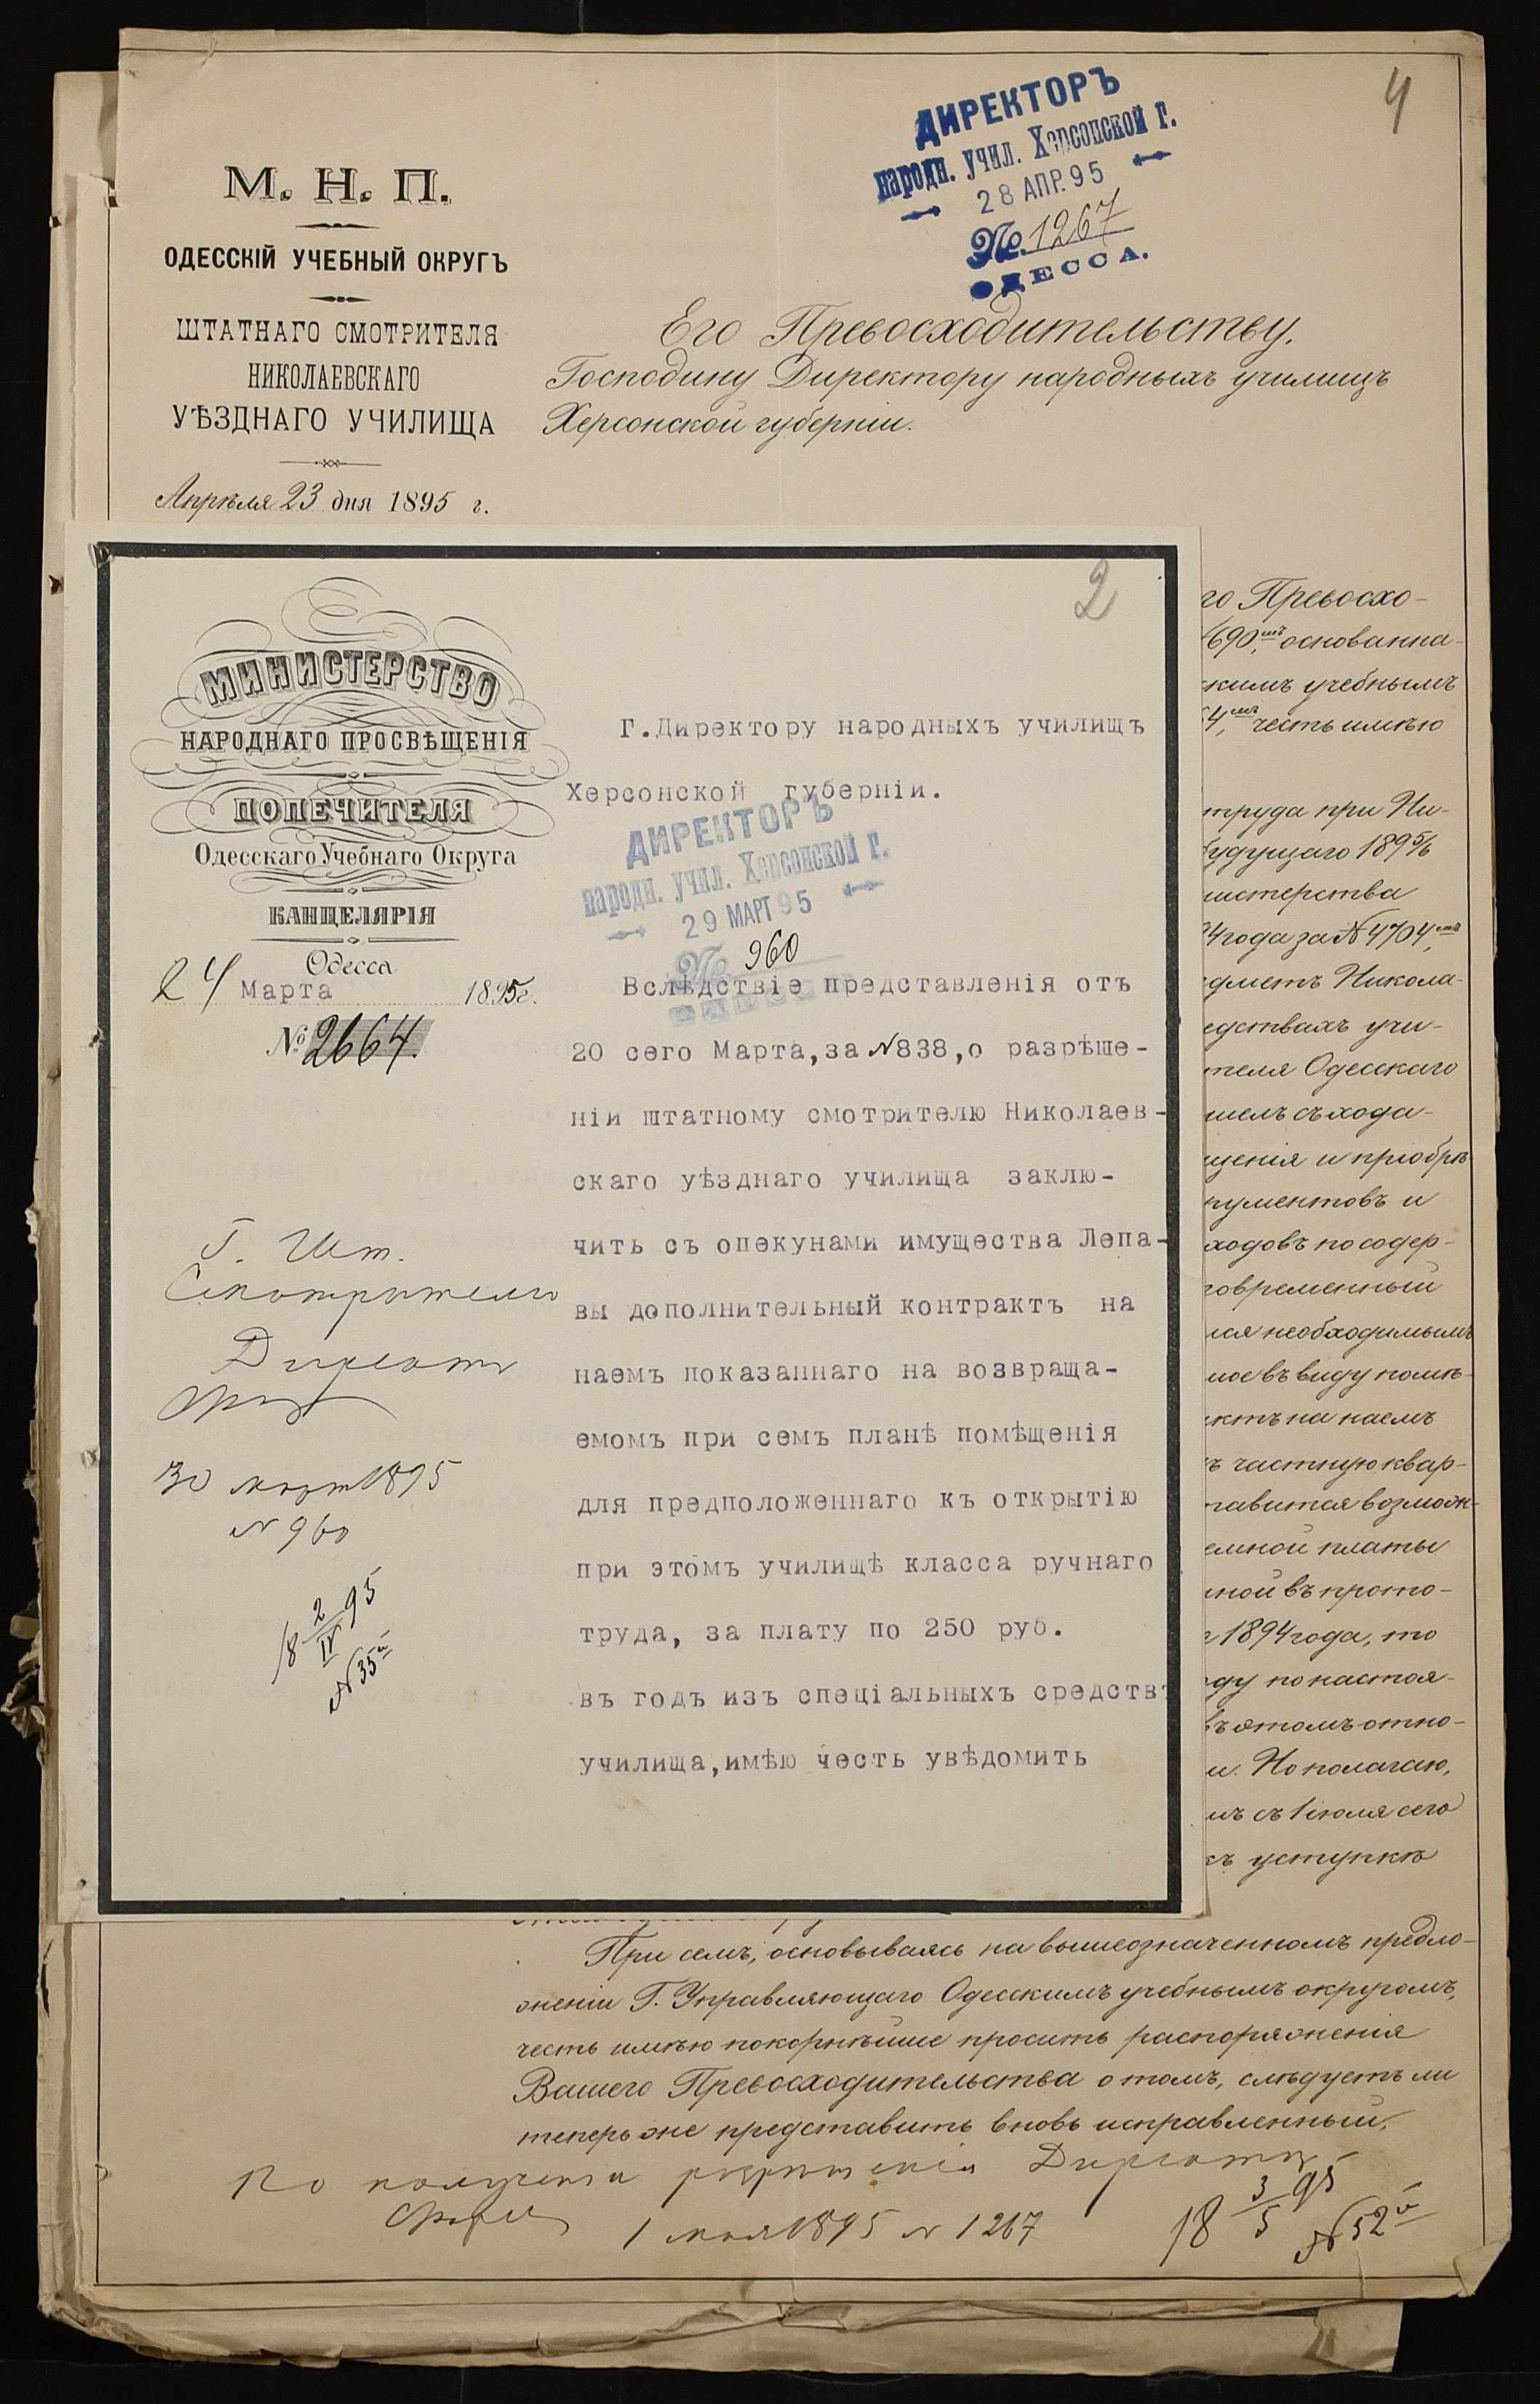 4
ДИРЕКТОРЪ
народн. учил. Херсонской Г.
28 АПР. 95
№ 1267
ОДЕССА.
М. Н. П.
ОДЕССКІЙ УЧЕБНЫЙ ОКРУГЪ
ШТАТНАГО СМОТРИТЕЛЯ
НИКОЛАЕВСКАГО
УѢЗДНАГО УЧИЛИЩА
Апрѣля 23 дня 1895 г.
Его Превосходительству,
Господину Директору народныхъ училищъ
Херсонской губерніи.
2
МИНИСТЕРСТВО
НАРОДНАГО ПРОСВѢЩЕНІЯ
ПОПЕЧИТЕЛЯ
Одесскаго Учебнаго Округа
КАНЦЕЛЯРІЯ
Одесса
24 Марта 1895 г.
№ 2664.
Г. Директору народныхъ училищъ
Херсонской губерніи.
ДИРЕКТОРЪ
народн. учил. Херсонской Г.
29 МАРТ 95
№ 960
Вслѣдствіе представленія отъ
20 сего Марта, за №838, о разрѣше-
ніи штатному смотрителю Николаев-
скаго уѣзднаго училища заклю-
чить съ опекунами имущества Лепа-
вы дополнительный контрактъ на
наемъ показаннаго на возвраща-
емомъ при семъ планѣ помѣщенія
для предположеннаго къ открытію
при этомъ училищѣ класса ручнаго
труда, за плату по 250 руб.
въ годъ изъ спеціальныхъ средствъ
училища, имѣю честь увѣдомить
Г. Шт.
Смотрителю
Директ
30 март 1895
№ 960
18 2/IV 95
№ 35й
го Превосхо-
690,мъ основанна-
скимъ учебнымъ
4,мъ честь имѣю
труда при Ни-
будущаго 1895/6
нистерства
94 года за № 4704,мъ
дметъ Никола-
едствахъ учи-
теля Одесскаго
шелъ съ хода-
щенія и пріобрѣ-
рументовъ и
ходовъ по содер-
говременный
лся необходимымъ
мое въ виду помѣ-
актъ на наемъ
ъ частную квар-
тавится возмож-
емной платы
нной въ прото-
1894 года, то
ду по настоя-
въ этомъ отно-
и. Но полагаю,
мъ съ 1 іюля сего
къ уступкѣ
При семъ, основываясь на вышеозначенномъ предло-
женіи Г. Управляющаго Одесскимъ учебнымъ округомъ,
честь имѣю покорнѣйше просить распоряженія
Вашего Превосходительства о томъ, слѣдуетъ ли
теперь же представить вновь исправленный,
По полученіи разрѣшенія Директ
1 мая 1895 № 1267
18 3/5 95
№ 52й